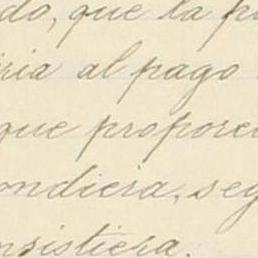 do, que la p
iria al pago
que proporci
ondiera, seg
nsistiera.